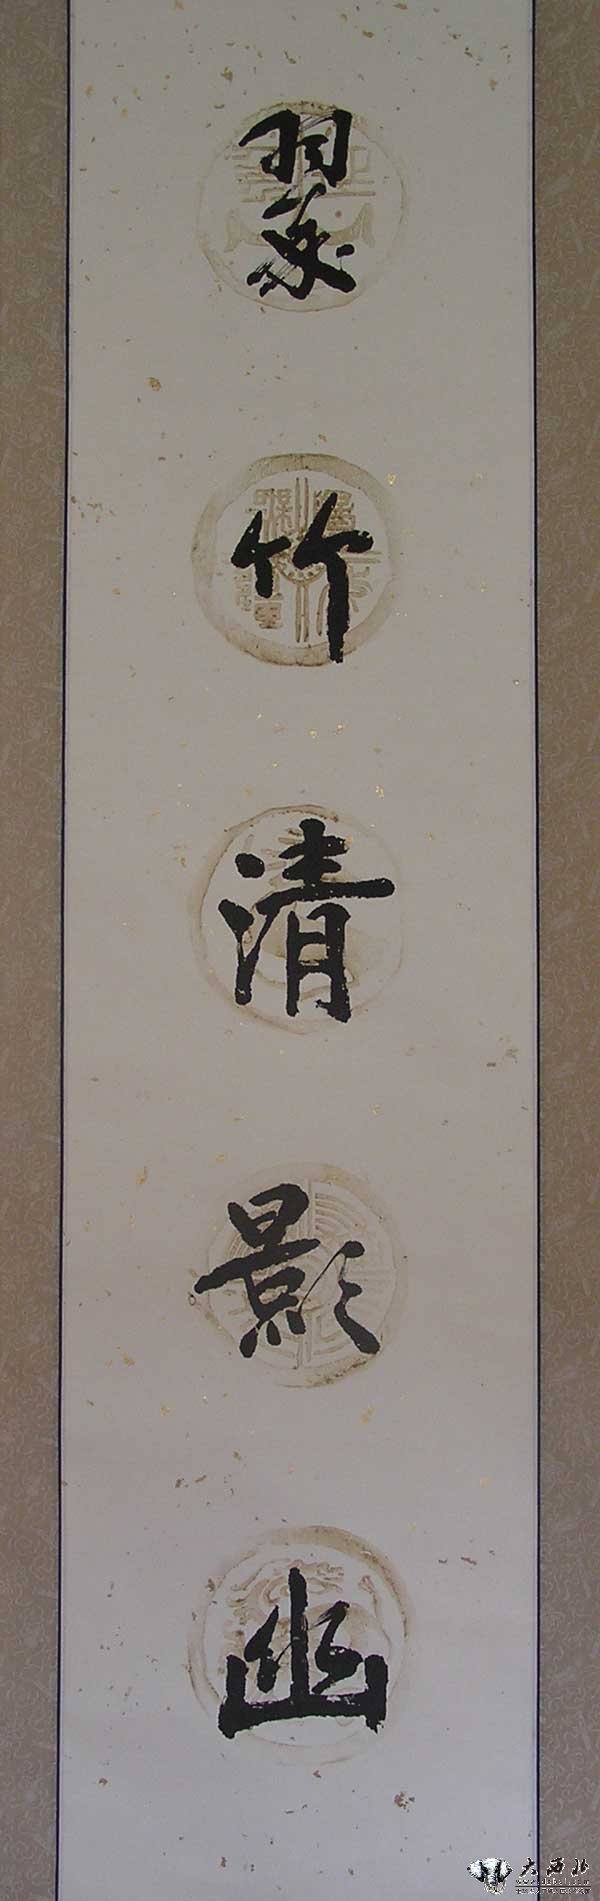 翠竹清影幽
大西北